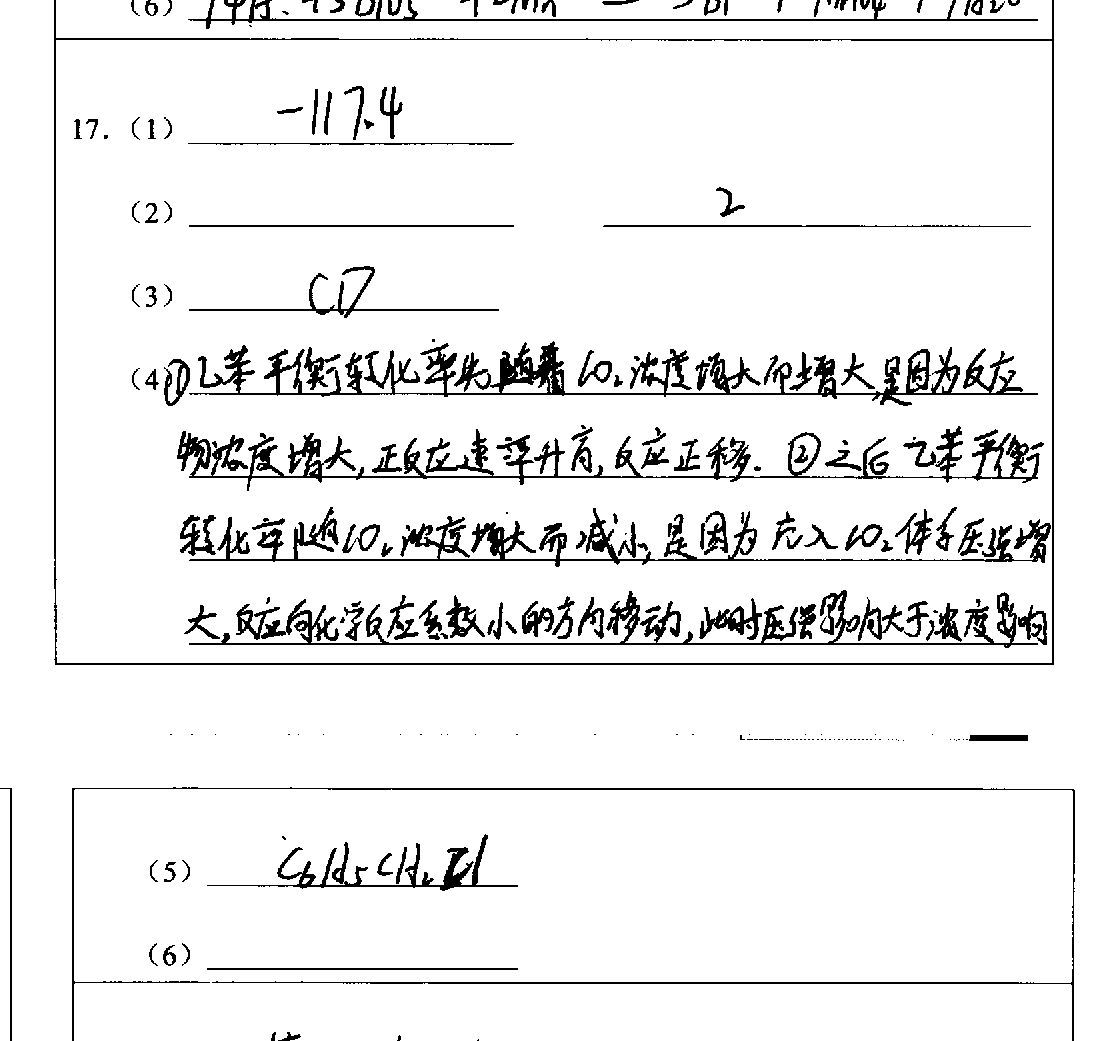 (6) 14H⁺+5BiO₃⁻+2Mn
17. (1) -117.4
(2) 2
(3) CD
(4) ①乙苯平衡转化率先随着CO₂浓度增大而增大,是因为反应
物浓度增大,正反应速率升高,反应正移. ②之后乙苯平衡
转化率随CO₂浓度增大而减小,是因为充入CO₂体系压强增
大,反应向化学反应系数小的方向移动,此时压强影响大于浓度影响
(5) C₆H₅CH₂Cl
(6)